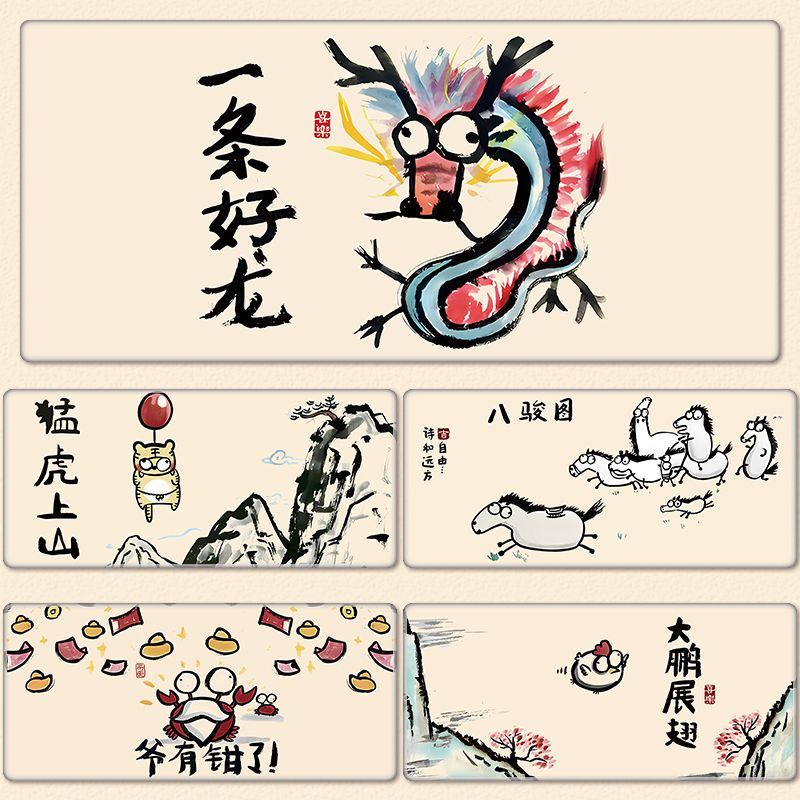 一条好龙
喜樂
猛虎上山
八骏图
吉自由…
诗和远方
爷有钳了!
大鹏展翅
喜樂